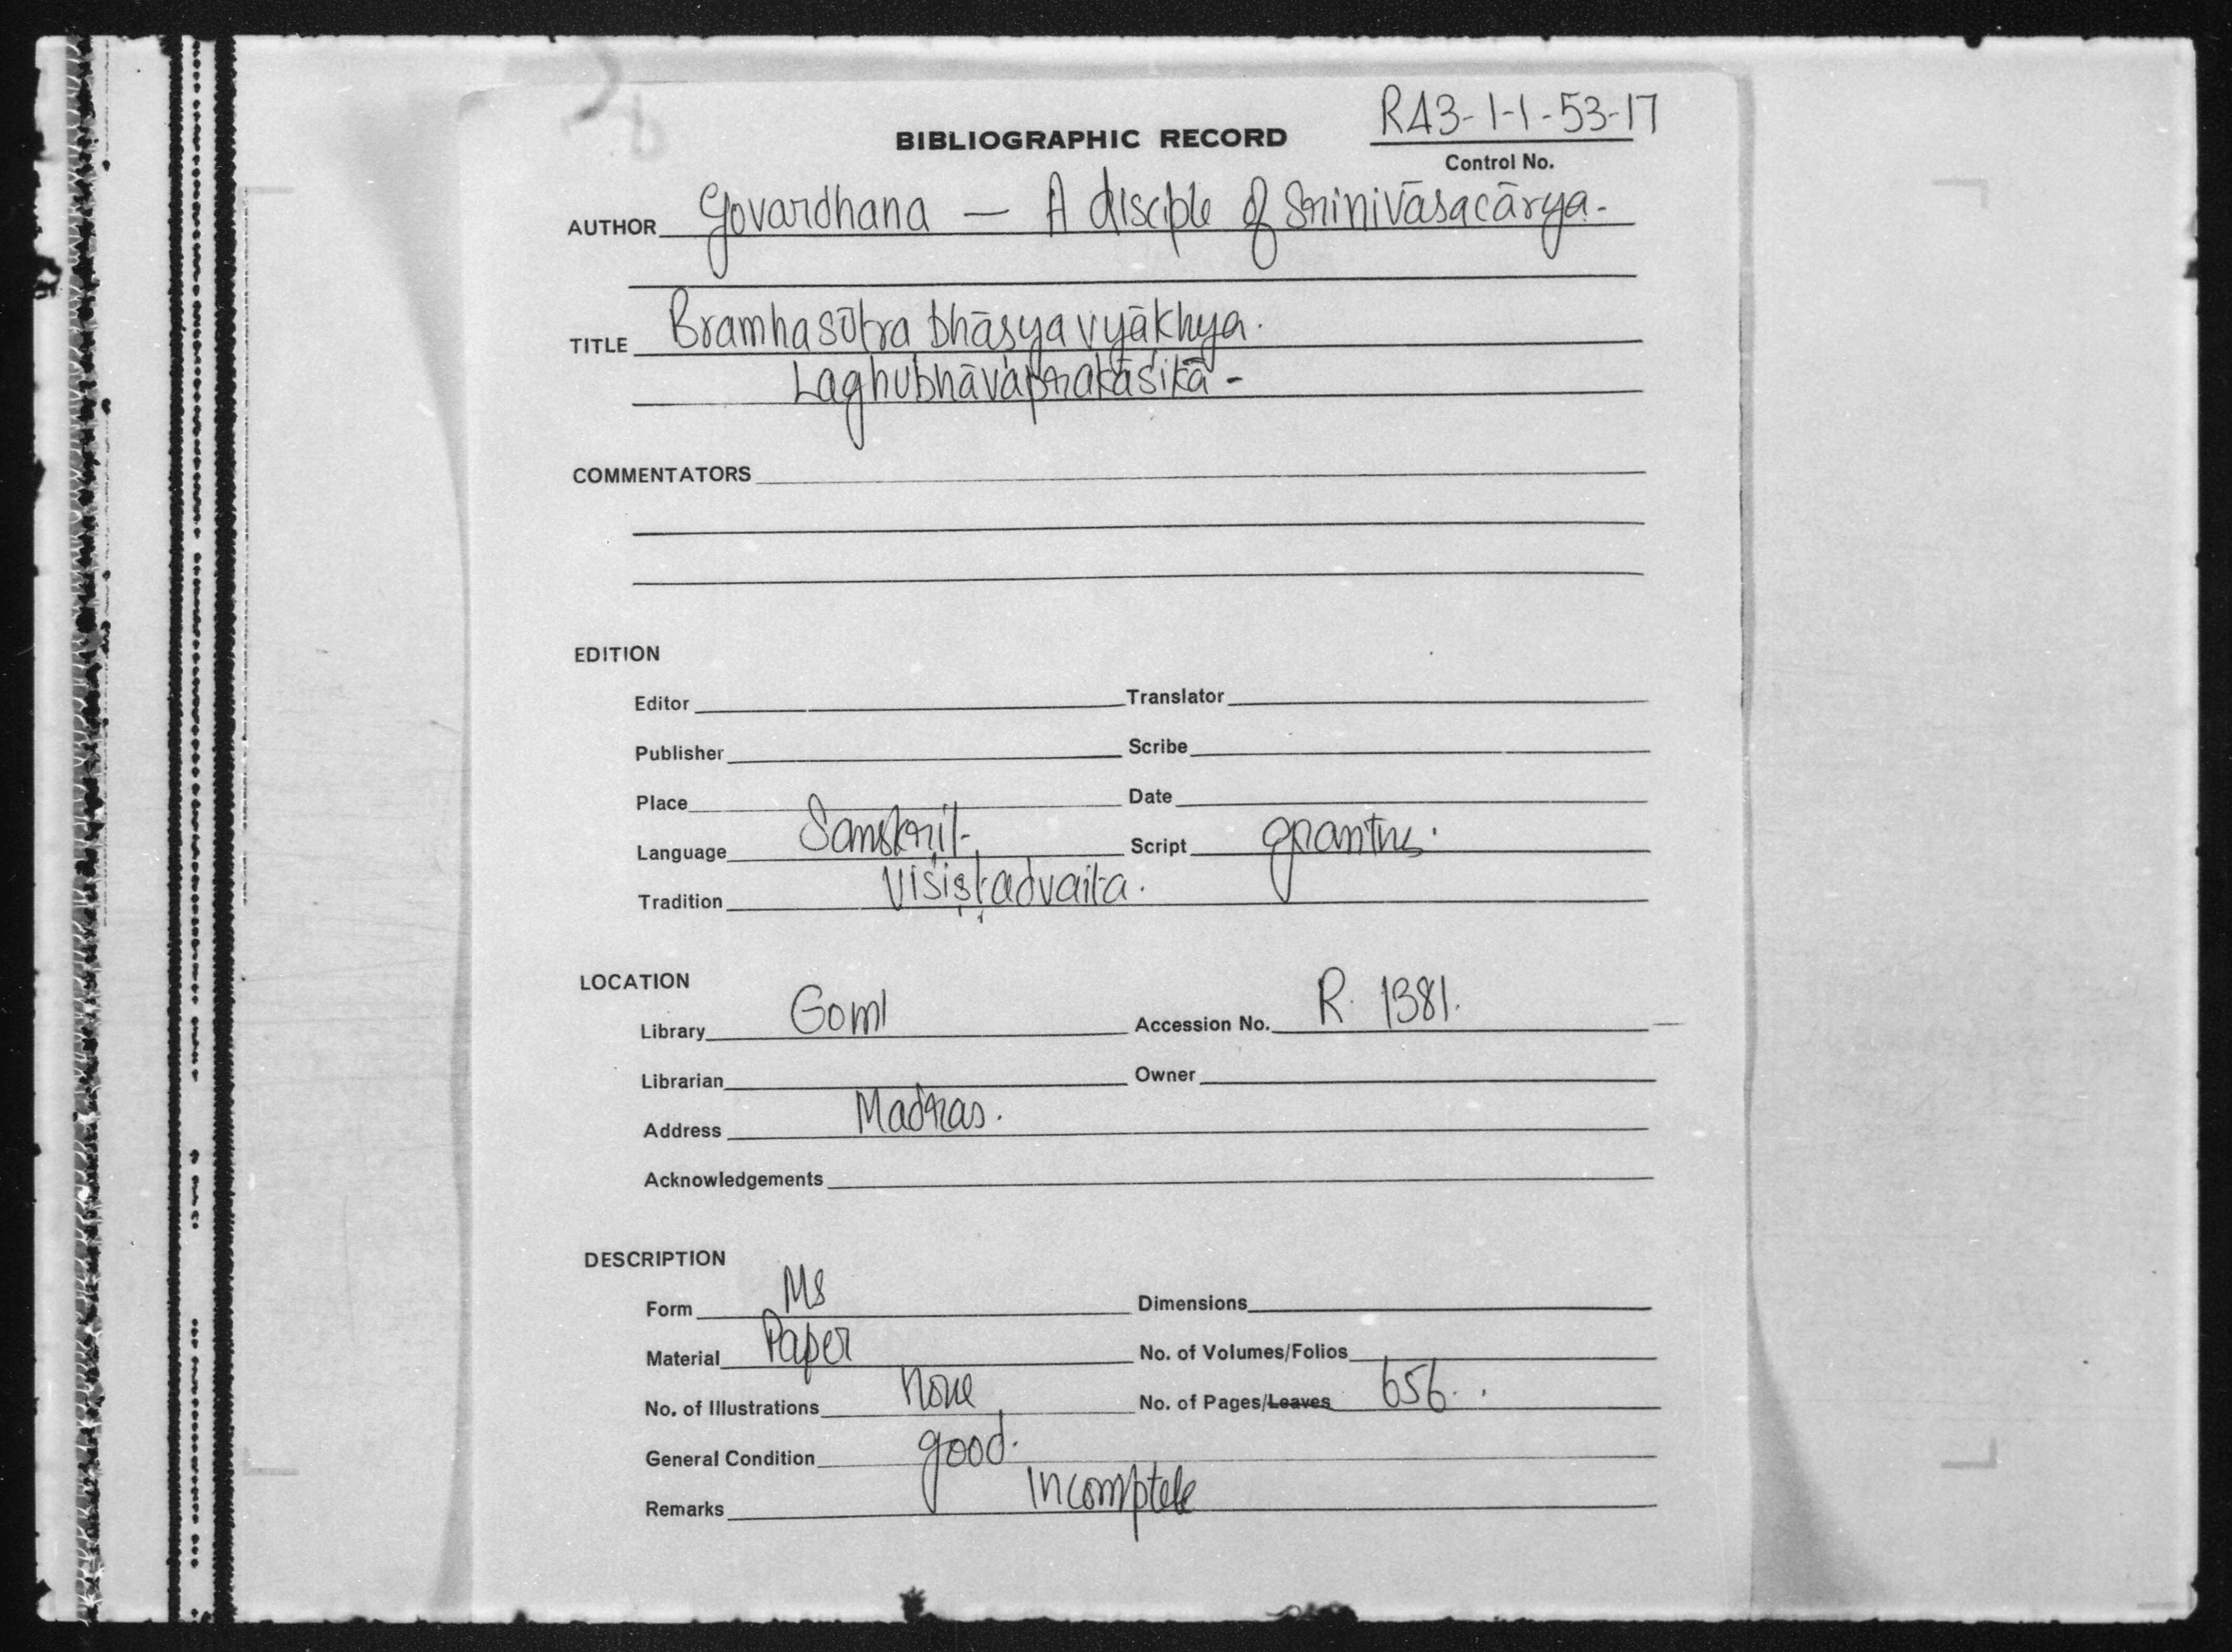 R43-1-1-53-17
BIBLIOGRAPHIC RECORD
Control No.
AUTHOR Govardhana — A disciple of Srinivāsacārya.
TITLE Bramhasūtra bhāsya vyākhya.
Laghubhāvaprakāśikā -
COMMENTATORS
EDITION
Editor Translator
Publisher Scribe
Place Date
Language Sanskrit Script grantha.
Tradition Viśiṣṭadvaita.
LOCATION
Library Goml Accession No. R. 1381.
Librarian Owner
Address Madras.
Acknowledgements
DESCRIPTION
Form Ms Dimensions
Material Paper No. of Volumes/Folios
No. of Illustrations None No. of Pages/Leaves 656.
General Condition good.
Remarks Incomplete